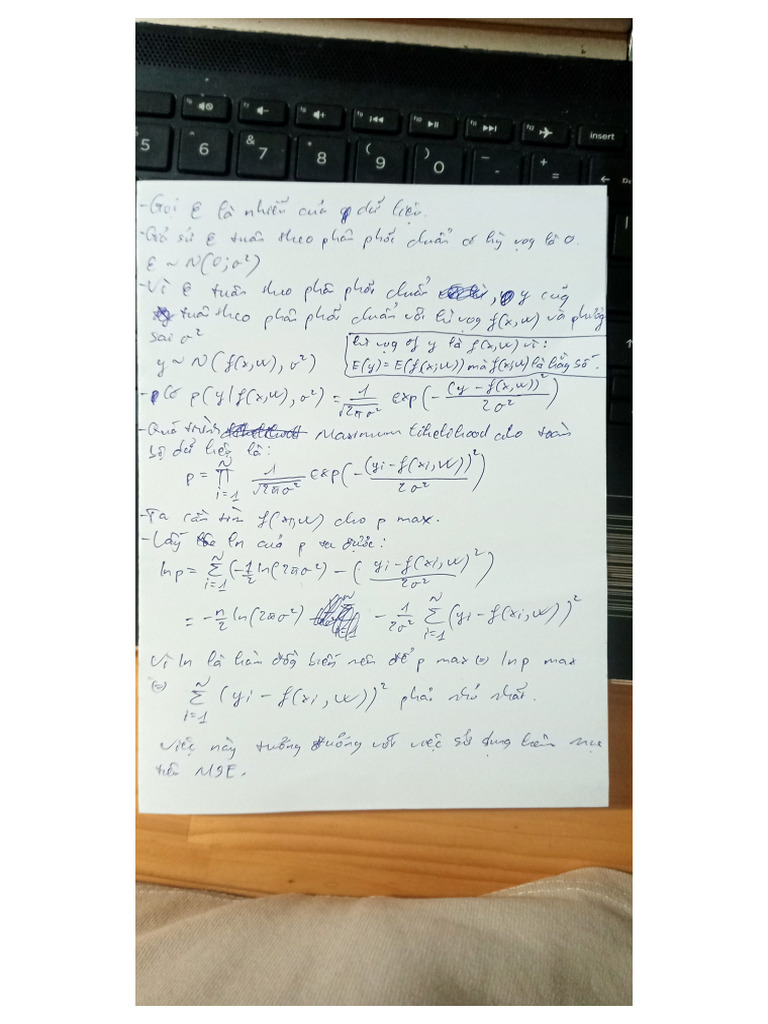 5
6
& 7
8
( 9
) 0
-
+ =
insert
- Gọi ε là nhiễu của dữ liệu.
- Giả sử ε tuân theo phân phối chuẩn có kỳ vọng là 0.
ε ~ N(0; σ²)
- Vì ε tuân theo phân phối chuẩn, y cũng
tuân theo phân phối chuẩn với kỳ vọng f(x,w) và phương
sai σ²
y ~ N(f(x,w), σ²)
kì vọng of y là f(x,w) vì:
E(y) = E(f(x;w)) mà f(x;w) là hằng số.
- Có p(y|f(x,w), σ²) = 1/√2πσ² exp(-(y - f(x,w))²/2σ²)
- Quá trình Maximum likelihood cho toàn
bộ dữ liệu là:
p = ∏ i=1 n 1/√2πσ² exp(-(yi - f(xi,w))²/2σ²)
- Ta cần tìm f(x,w) cho p max.
- Lấy ln của p ta được:
ln p = ∑ i=1 n (-1/2 ln(2πσ²) - (yi - f(xi,w)²/2σ²)
= -n/2 ln(2πσ²) - 1/2σ² ∑ i=1 n (yi - f(xi,w))²
Vì ln là hàm đồng biến nên để p max ⇔ ln p max
⇔ ∑ i=1 n (yi - f(xi,w))² phải nhỏ nhất.
Việc này tương đương với việc sử dụng hàm mục
tiêu MSE.